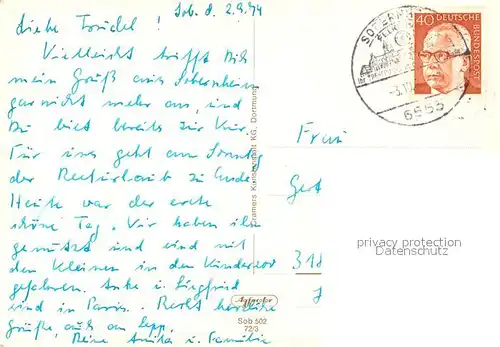 Sob. d. 2.9.74
Liebe Trudel!
Vielleicht trifft Dich
mein Gruß aus Sobernheim
gar nicht mehr an, und
Du bist bereits zur Kur.
Für uns geht am Sonntag
der Resturlaub zu Ende
Heute war der erste
schöne Tag. Wir haben ihn
genützt und sind mit
den Kleinen in den
gefahren. Anke u. Siegfried
sind in Paris. Recht herzliche
Grüße, auch an Sepp,
Deine Anita u. Familie
Cramers Kunstanstalt KG, Dortmund
Sob 502
72/3
6553
40 DEUTSCHE
BUNDESPOST
Frau
Gert
318
privacy protection
Datenschutz